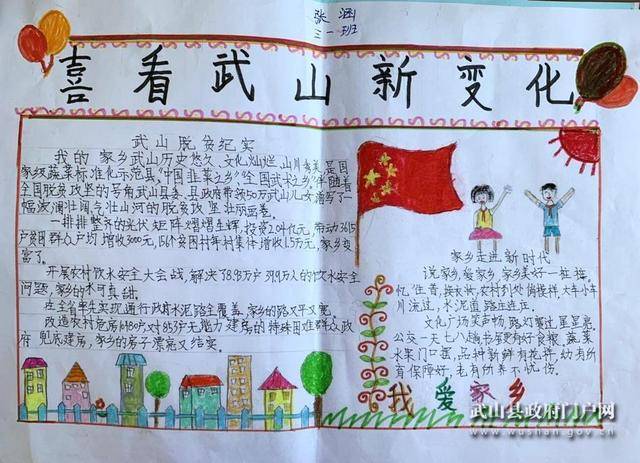 张涵
三一班
喜看武山新变化
武山脱贫纪实
我的家乡武山历史悠久、文化灿烂,山川秀美,是国
家级蔬菜标准化示范县,"中国韭菜之乡""全国武术之乡"伴随着
全国脱贫攻坚的号角,武山县委、县政府带领50万武山儿女谱写了一
幅波澜壮阔气壮山河的脱贫攻坚壮丽画卷。
一排排整齐的光伏矩阵熠熠生辉,投资2.04亿元,带动3615
户贫困群众户均增收3000元,156个贫困村年村集体增收1.5万元,家乡变
富了。
开展农村饮水安全大会战,解决了8.98万户 万人的饮水安全
问题,家乡的水可真甜。
在全省率先实现通行政村水泥路全覆盖,家乡的路又平又宽。
改造农村危房 户,对 户无能力建房的特殊困难群众政
府兜底建房,家乡的房子漂亮又结实。
家乡走进新时代
说家乡,爱家乡,家乡美好一桩桩,
忆往昔,换衣裳,农村到处俏模样,大车小车
川流过,水泥道路连连庄。
文化广场笑声畅,路灯赛过星星亮。
公交一天七八趟,书屋更有好食粮,蔬菜
水果门口摆,品种新鲜有花样,幼有所
育保障好,老有所养不忧伤。
我爱家乡
武山县政府门户网
www.wushan.gov.cn